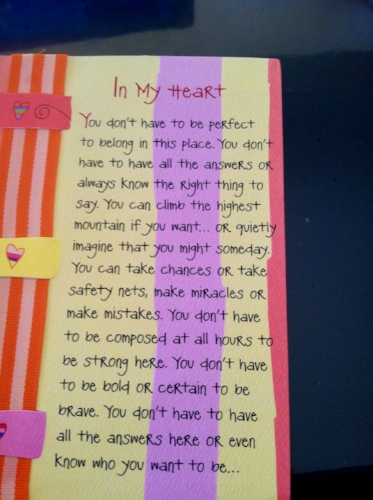 In My Heart
You don't have to be perfect
to belong in this place. You don't
have to have all the answers or
always know the right thing to
say. You can climb the highest
mountain if you want... or quietly
imagine that you might someday.
You can take chances or take
safety nets, make miracles or
make mistakes. You don't have
to be composed at all hours to
be strong here. You don't have
to be bold or certain to be
brave. You don't have to have
all the answers here or even
know who you want to be...